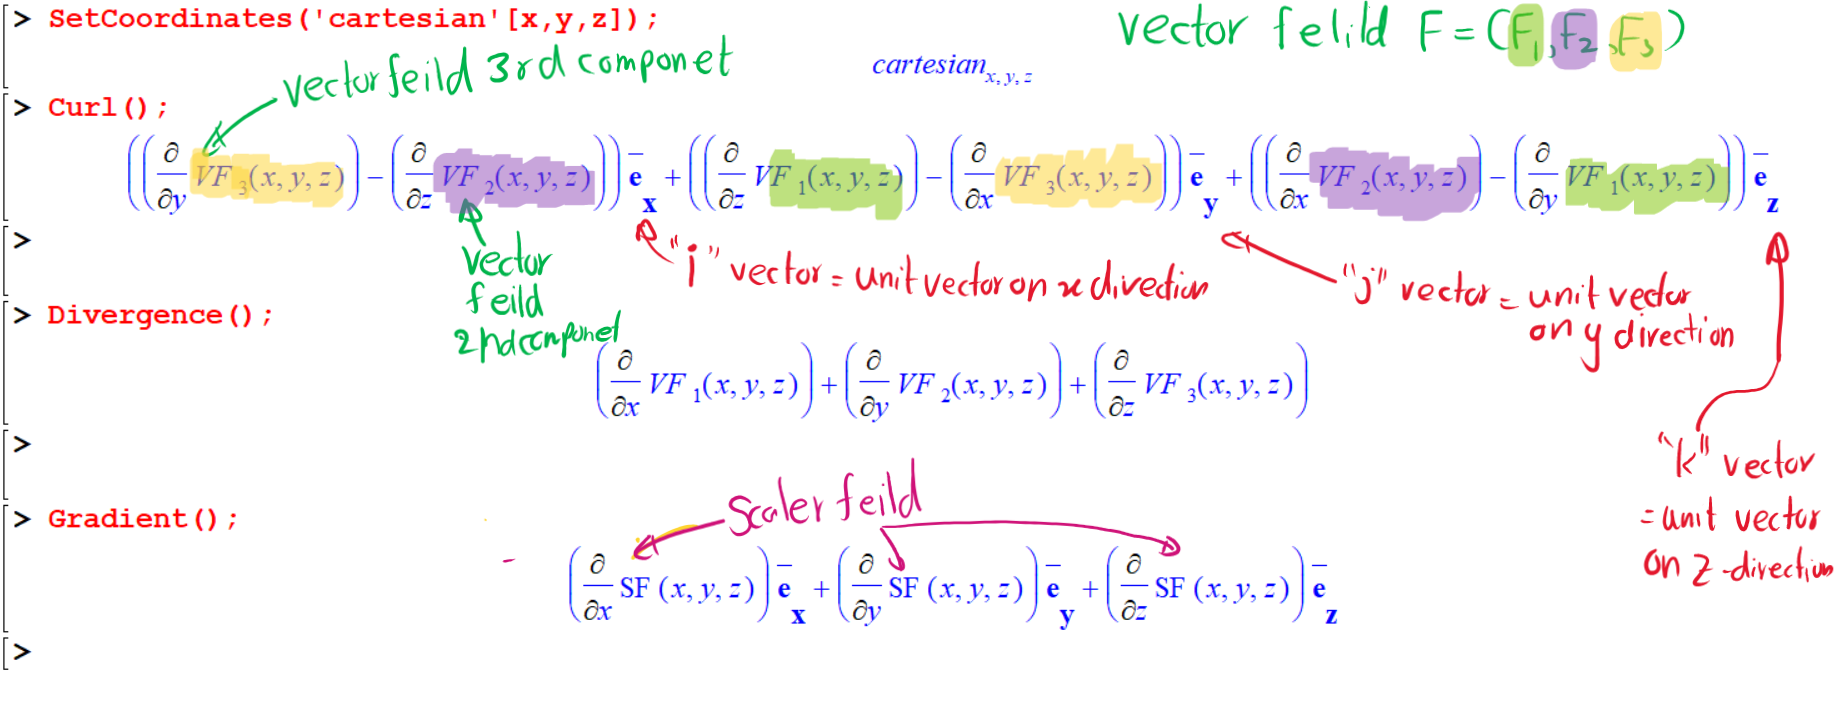 > SetCoordinates('cartesian'[x,y,z]);
vector felild F = (F₁, F₂, F₃)
vector feild 3rd componet
cartesian_{x, y, z}
> Curl();
((∂/∂y VF₃(x, y, z)) − (∂/∂z VF₂(x, y, z))) e̅_x + ((∂/∂z VF₁(x, y, z)) − (∂/∂x VF₃(x, y, z))) e̅_y + ((∂/∂x VF₂(x, y, z)) − (∂/∂y VF₁(x, y, z))) e̅_z
>
vector
feild
2nd componet
"i" vector = unit vector on x direction
"j" vector = unit vector
on y direction
> Divergence();
(∂/∂x VF₁(x, y, z)) + (∂/∂y VF₂(x, y, z)) + (∂/∂z VF₃(x, y, z))
>
"k" vector
= unit vector
on z-direction
> Gradient();
Scaler feild
(∂/∂x SF (x, y, z)) e̅_x + (∂/∂y SF (x, y, z)) e̅_y + (∂/∂z SF (x, y, z)) e̅_z
>